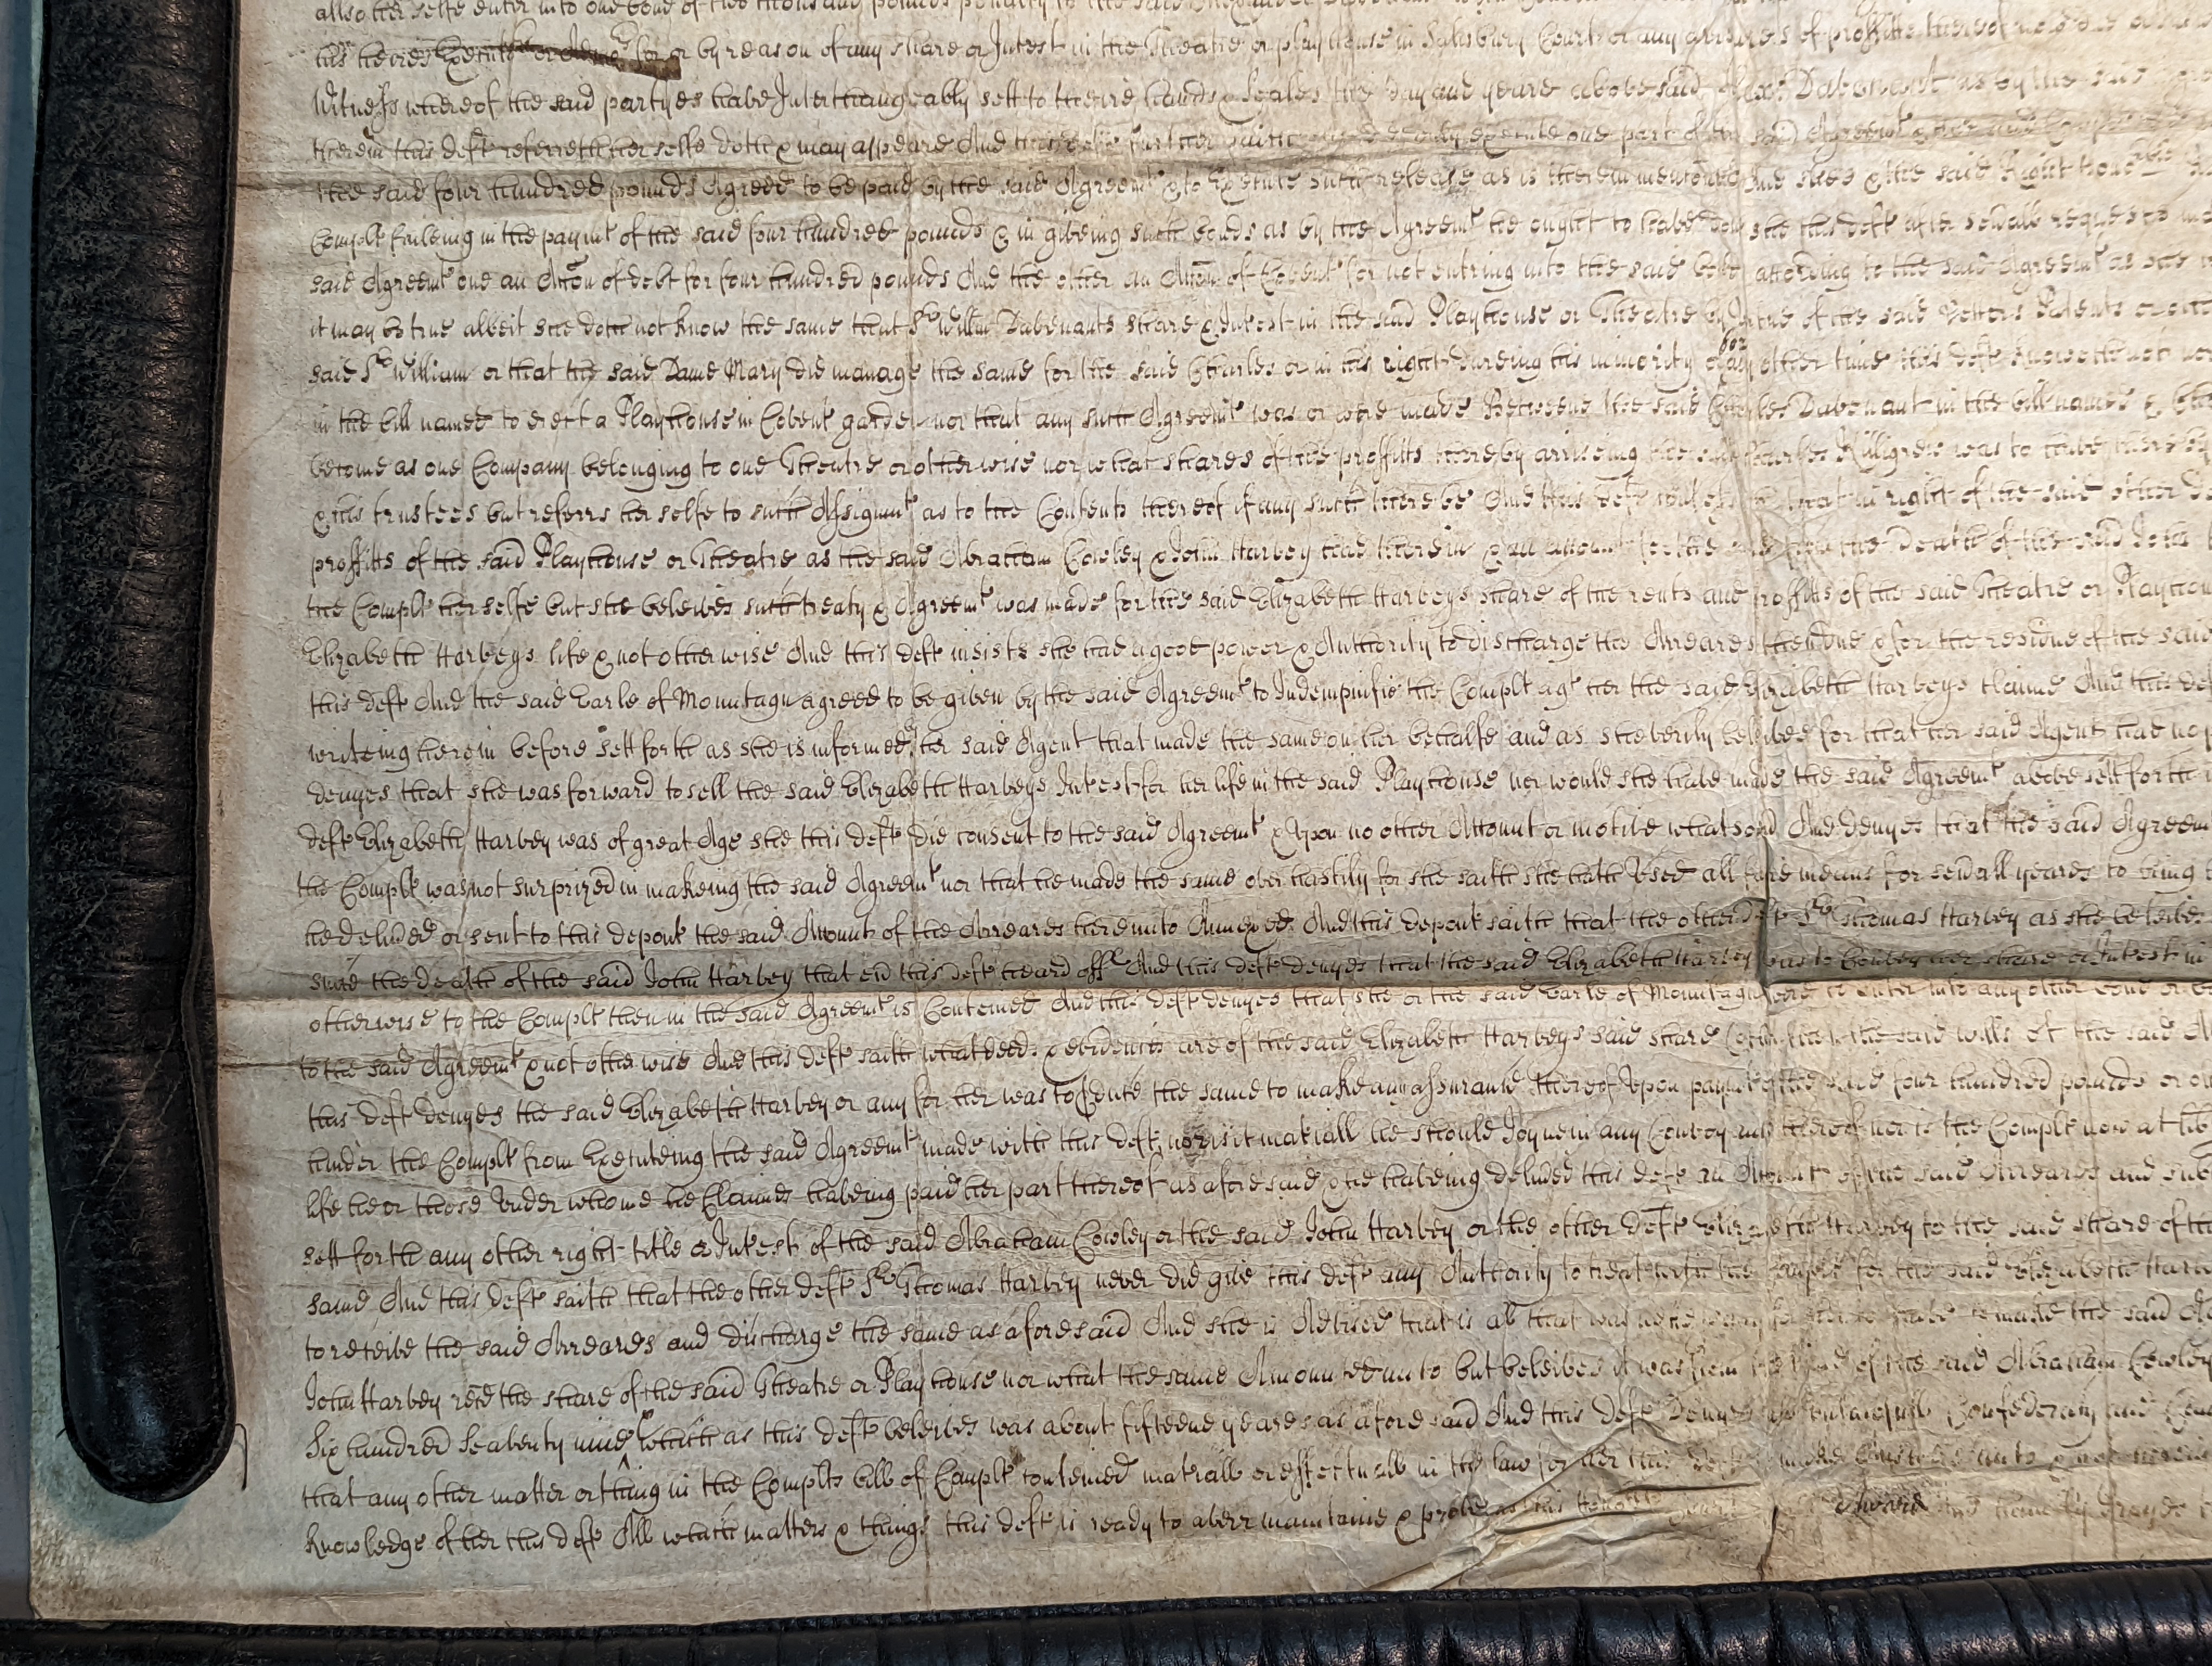 allso her selfe enter into one bond of two thousand pounds penalty to the said
his heires or by reason of any share or Intest in the Theatre or playhouse in Salisbury Court or any arreares of proffitts thereof
Witness whereof the said partyes have Interchangeably sett to theire hands & Seales the day and yeare abovesaid Alexr Davenant as by the said
therein this deft referreth her selfe doth & may appeare And this deft further saith execute one part of the said Agreemt
the said four hundred pounds Agreed to be paid by the said Agreemt & to Execute such release as is therein mentoned And shee & the said Right Honoble
Complt faileing in the paymt of the said four hundred pounds & in giveing such bonds as by the Agreemt he ought to have don she this deft after sevall requests
said Agreemt one an Accon of debt for four hundred pounds And the other an Accon of Covent for not entring into the said bond according to the said Agreemt as she
it may be true albeit she doth not know the same that Sr Willm Davenants share & Intest in the said Playhouse or Theatre by Vertue of the said Letters Patents
said Sr William or that the said Dame Mary did manage the same for the said Charles or in his right dureing his minority or for any other time this deft knoweth not nor
in the bill named to erect a Playhouse in Covent garden nor that any such Agreemt was or were made Betweene the said Charles Davenant in the bill named &
become as one Company belonging to one Theatre or otherwise nor what shares of the proffitts thereby ariseing the said Charles Killigrew was to have thereby
& his trustees but referrs her selfe to such Assignmt as to the Contents thereof if any such there be And this deft that in right of the said other
proffitts of the said Playhouse or Theatre as the said Abraham Cowley & John Harvey had therein & an account for the from the Death of the said John
the Complt her selfe but she beleives such treaty & Agreemt was made for the said Elizabeth Harveys share of the rents and proffitts of the said Theatre or Playhouse
Elizabeth Harveys life & not otherwise And this deft insists she had a good power & Authority to discharge the Arreares then due & for the residue of the said
this deft And the said Earle of Mountagu agreed to be given by the said Agreemt to Indempnifie the Complt agt her the said Elizabeth Harveys claime And this deft
writeing herein before sett forth as she is informed by her said Agent that made the same on her behalfe and as she verily beleives for that her said Agent had no
denyes that she was forward to sell the said Elizabeth Harveys Intest for her life in the said Playhouse nor would she have made the said Agreemt above sett forth
deft Elizabeth Harvey was of great Age she this deft did consent to the said Agreemt & Upon no other Account or motive whatsoevr And denyes that the said Agreemt
the Complt was not surprized in makeing the said Agreemt nor that he made the same over hastily for she saith she hath Used all faire means for sevall yeares to bring
he delived or sent to this deponts the said Account of the Arreares hereunto Annexed And this deponts saith that the other deft Sr Thomas Harvey as she beleives
since the death of the said John Harvey that evr this deft heard off And this deft denyes that the said Elizabeth Harvey was to convey her share or Intest in
otherwise to the Complt then in the said Agreemt is Conteined And this deft denyes that she or the said Earle of Mountagu were to enter into any other bond or
to the said Agreemt & not otherwise And this deft saith what deeds & evidences are of the said Elizabeth Harveys said share the said wills of the said
this deft denyes the said Elizabeth Harvey or any for her was to the same to make any assurance thereof Upon paymt of the said four hundred pounds or
hinder the Complt from Executeing the said Agreemt made with this deft nor is it matiall he should Joyne in any Convey thereof nor is the Complt now at
life he or those Under whome he Claimes haveing paid her part thereof as aforesaid & he haveing delived this deft an Account of the said Arreares and
sett forth any other right title or Intest of the said Abraham Cowley or the said John Harvey or the other deft Elizabeth Harvey to the said share of the
same And this deft saith that the other deft Sr Thomas Harvey never did give this deft any Authority to treat with the Complt for the said Elizabeth
to receive the said Arreares and discharge the same as aforesaid And she is Advised that is all that was to make the said
John Harvey recd the share of the said Theatre or Playhouse nor what the same Amounted unto but beleives it was from the of the said Abraham Cowley
Six hundred Seaventy nine which as this deft beleives was about fifteene yeares as aforesaid And this deft Denyes all unlawfull Confederacy and
that any other matter or thing in the Complts bill of Complt conteined matiall or effectuall in the law for her this deft to make Answere unto & not herein
knowledge of her this deft All which matters & things this deft is ready to averr maintaine & prove as this Honoble Court shall Award And humbly prayes